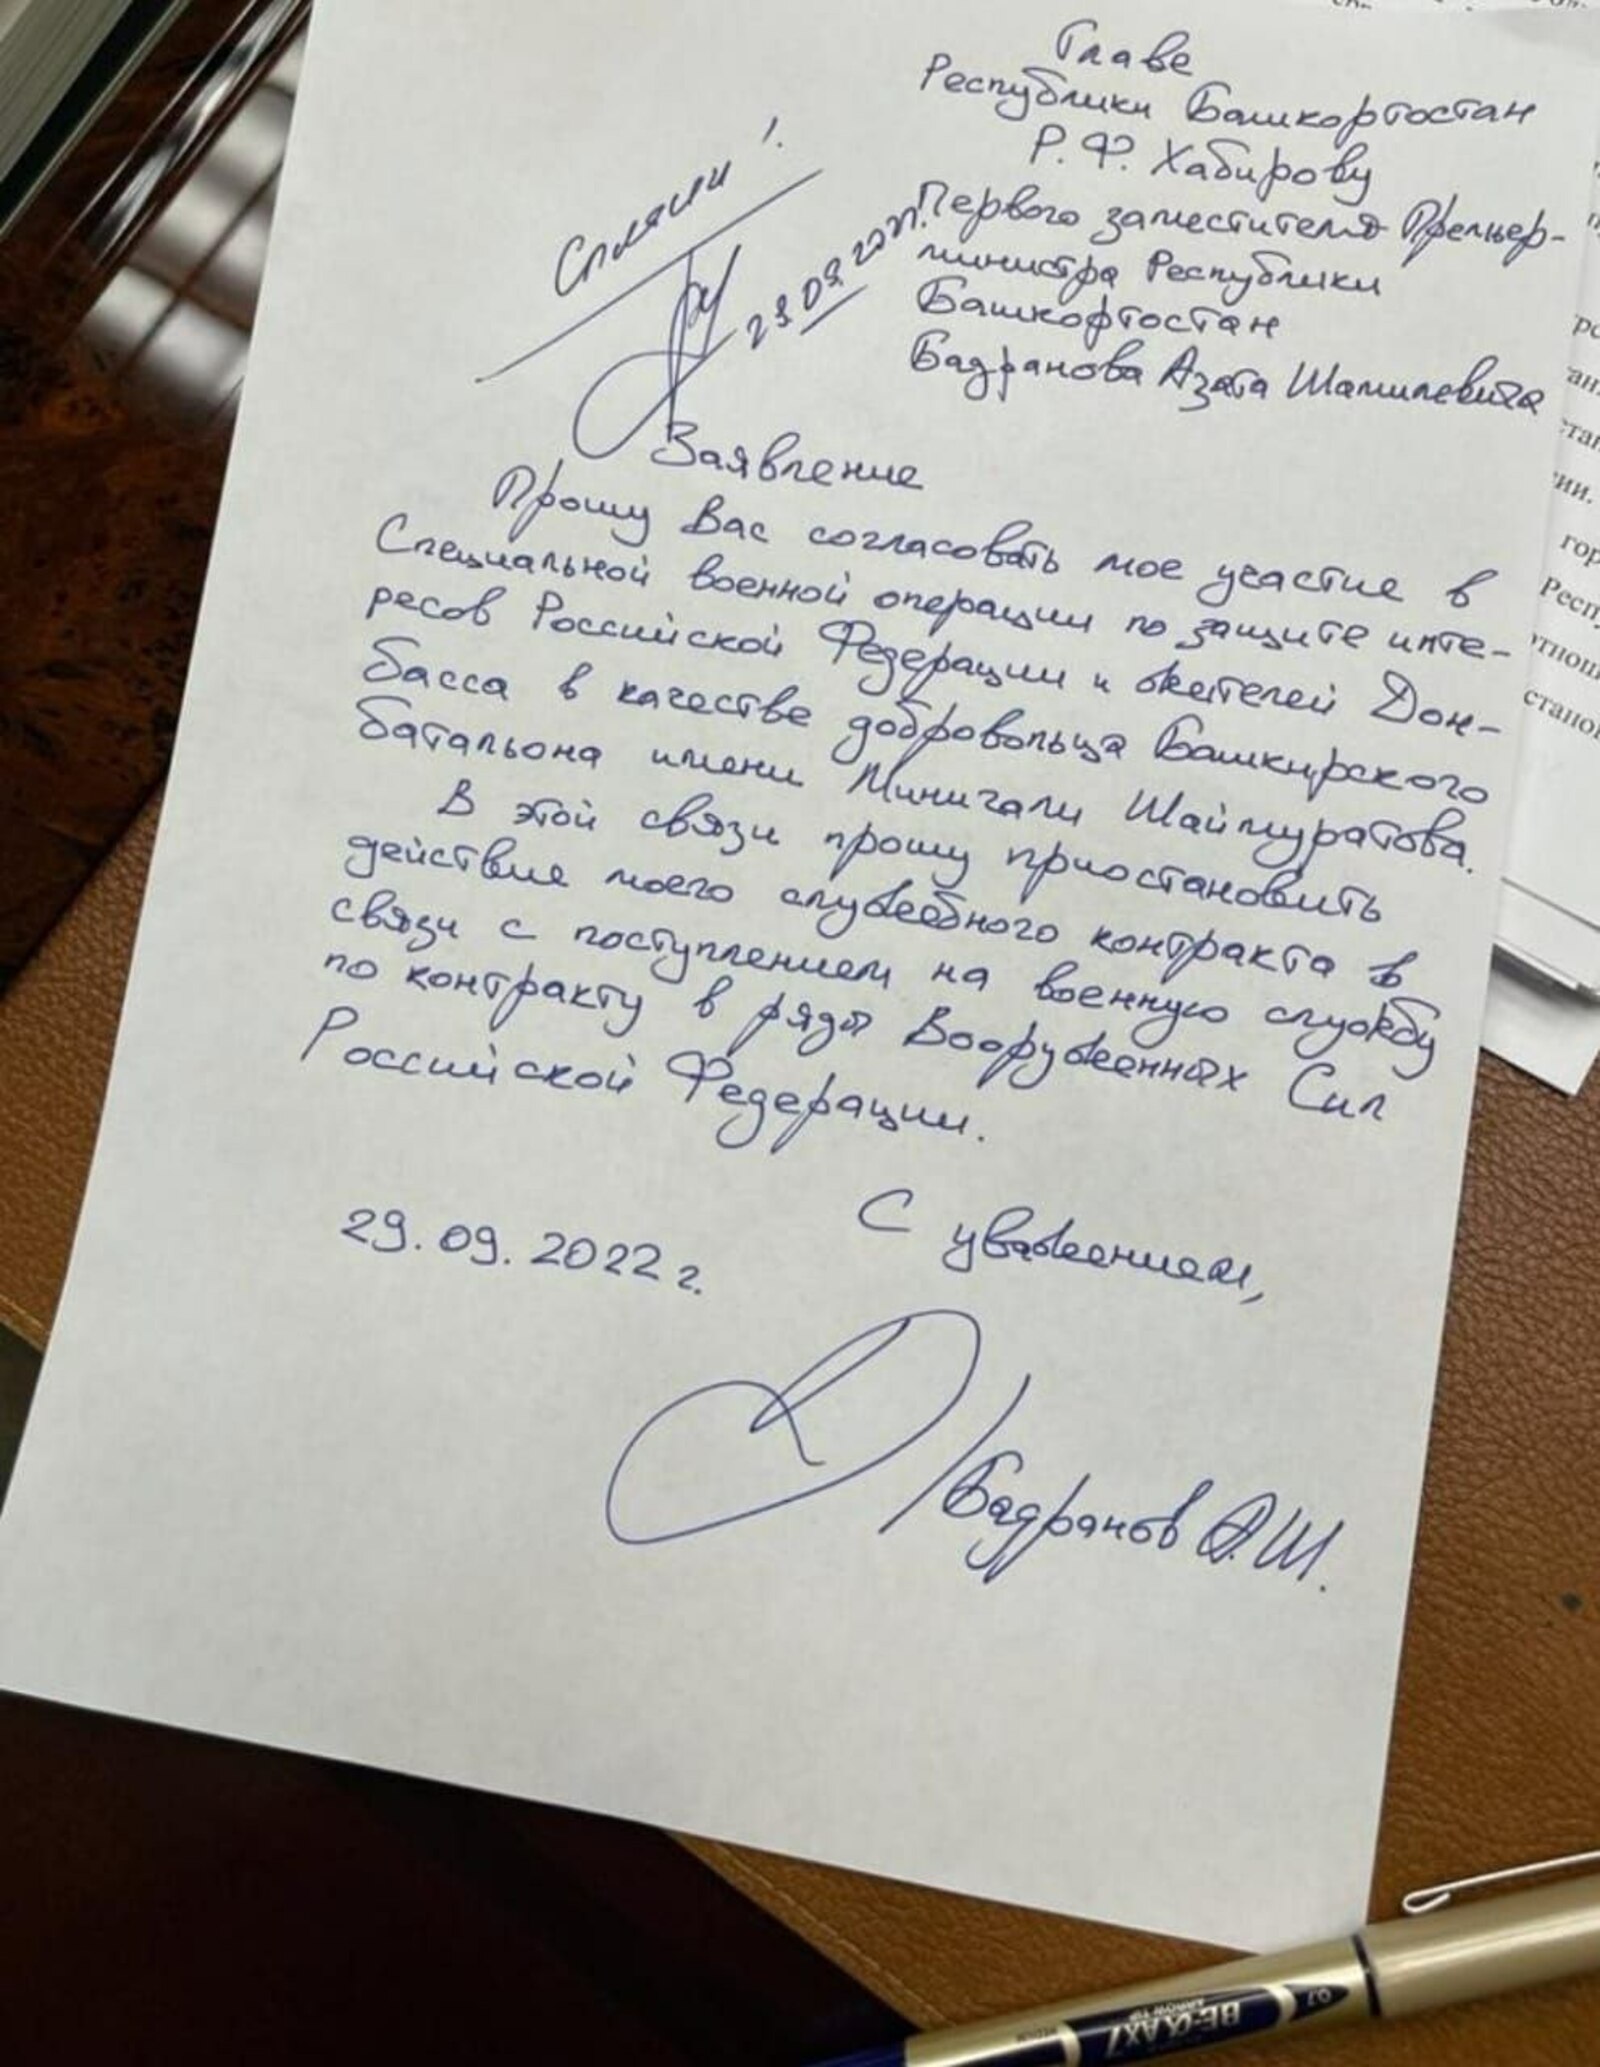 Главе
Республики Башкортостан
Р. Ф. Хабирову
Первого заместителя Премьер-
министра Республики
Башкортостан
Бадранова Азата Шамилевича
29.09.2022г.
Заявление
Прошу Вас согласовать мое участие в
Специальной военной операции по защите инте-
ресов Российской Федерации и жителей Дон-
басса в качестве добровольца Башкирского
батальона имени Минигали Шаймуратова.
В этой связи прошу приостановить
действие моего служебного контракта в
связи с поступлением на военную службу
по контракту в ряды Вооруженных Сил
Российской Федерации.
С уважением,
29.09.2022 г.
Бадранов А.Ш.
рс
ан
ста
ии.
гор
Респ
тнош
станов
BE-αAX7
ARROW TIP
MEDIUM
0.7